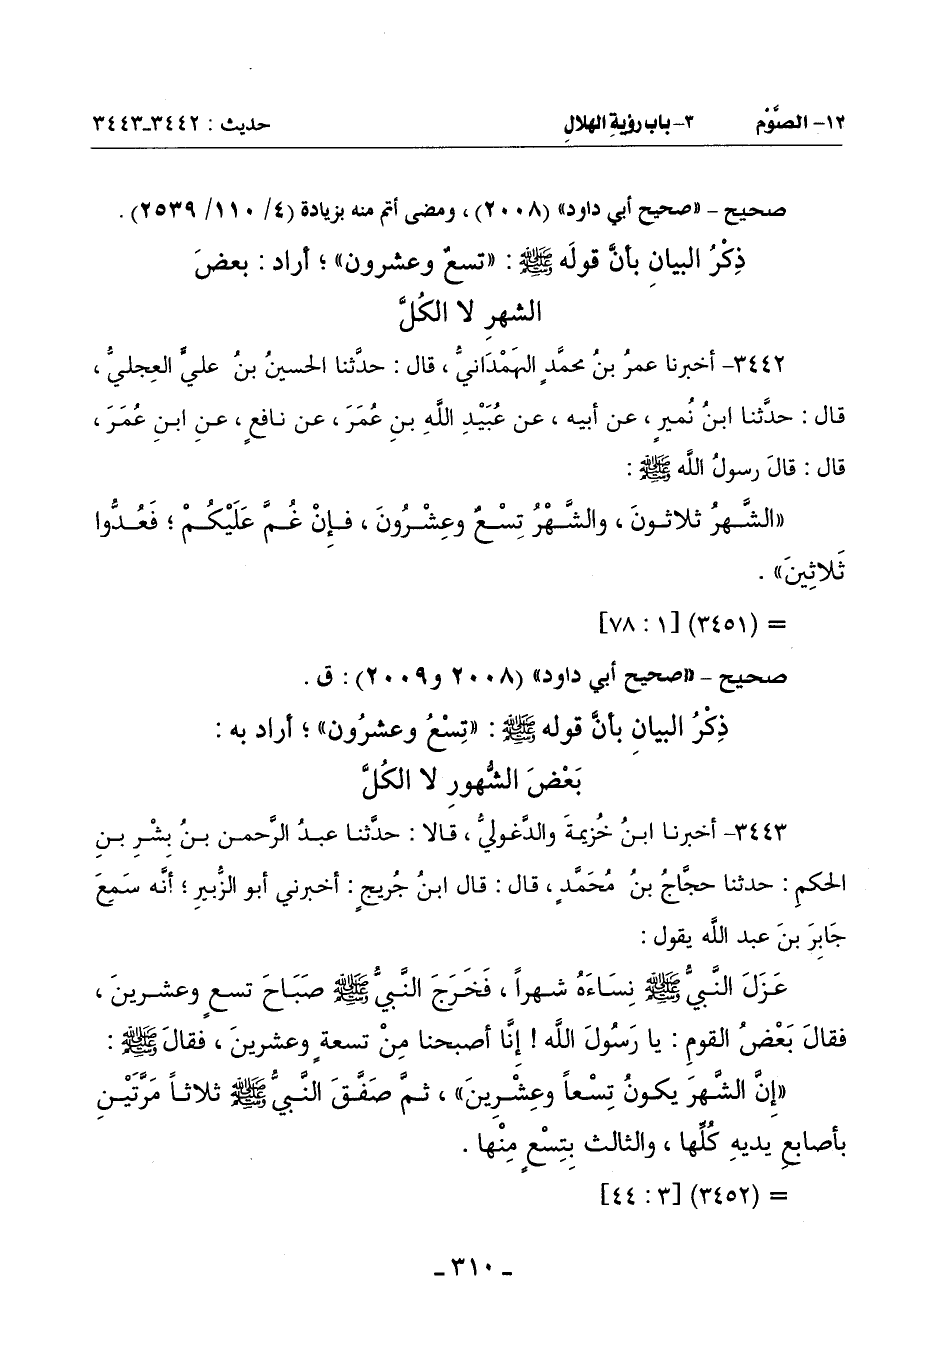 ١٢- الصَّوْم ٣- باب رؤية الهلالِ حديث : ٣٤٤٢-٣٤٤٣
صحيح - «صحيح أبي داود» (٢٠٠٨) ، ومضى أتم منه بزيادة (٤/ ١١٠/ ٢٥٣٩) .
ذِكْرُ البيانِ بأنَّ قولَه ﷺ : «تسعٌ وعشرون» ؛ أراد : بعضَ
الشهرِ لا الكُلَّ
٣٤٤٢- أخبرنا عمرُ بنُ محمَّدٍ الهَمْدَانيُّ ، قال : حدَّثنا الحسينُ بنُ عليٍّ العِجليُّ ،
قال : حدَّثنا ابنُ نُميرٍ ، عن أبيه ، عن عُبَيْدِ اللَّهِ بنِ عُمَرَ ، عن نافعٍ ، عنِ ابنِ عُمَرَ ،
قال : قالَ رسولُ اللَّه ﷺ :
«الشَّهرُ ثلاثونَ ، والشَّهْرُ تِسْعٌ وعِشْرُونَ ، فإِنْ غُمَّ عَلَيْكُمْ ؛ فَعُدُّوا
ثَلاثِينَ» .
= (٣٤٥١) [١ : ٧٨]
صحيح - «صحيح أبي داود» (٢٠٠٨ و٢٠٠٩) : ق .
ذِكْرُ البيانِ بأنَّ قوله ﷺ : «تِسْعُ وعشرُون» ؛ أراد به :
بَعْضَ الشُّهورِ لا الكُلَّ
٣٤٤٣- أخبرنا ابنُ خُزيمةَ والدَّغوليُّ ، قالا : حدَّثنا عبدُ الرَّحمن بنُ بِشْرِ بنِ
الحكمِ : حدثنا حجَّاجُ بنُ مُحَمَّدٍ ، قال : قال ابنُ جُريجٍ : أخبرني أبو الزُّبيرِ ؛ أنَّه سَمِعَ
جَابِرَ بنَ عبد اللَّه يقول :
عَزَلَ النَّبيُّ ﷺ نِسَاءَهُ شهراً ، فَخَرَجَ النَّبيُّ ﷺ صَبَاحَ تسعٍ وعشرينَ ،
فقالَ بَعْضُ القومِ : يا رَسُولَ اللَّه ! إنَّا أصبحنا مِنْ تسعةٍ وعشرينَ ، فقالَ ﷺ :
«إنَّ الشَّهرَ يكونُ تِسْعاً وعِشْرِينَ» ، ثمَّ صَفَّقَ النَّبيُّ ﷺ ثلاثاً مَرَّتَيْنِ
بأصابعِ يديهِ كُلِّها ، والثالث بِتِسْعٍ مِنْها .
= (٣٤٥٢) [٣ : ٤٤]
- ٣١٠ -